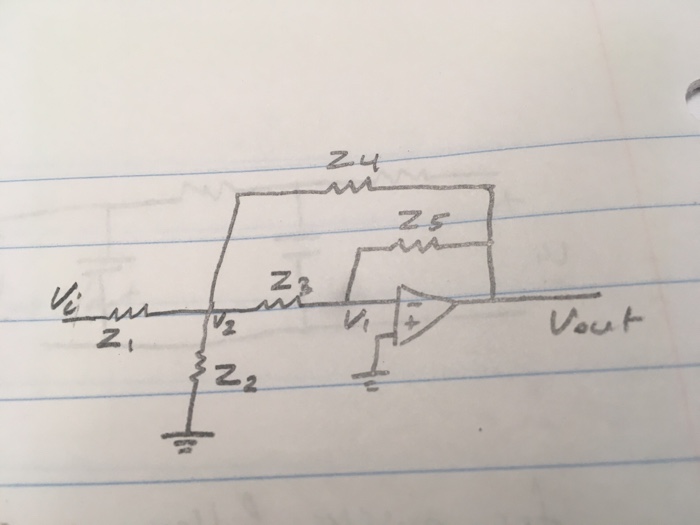 Z4
Z5
Vi
Z3
Z1
V2
V1
-
+
Vout
Z2